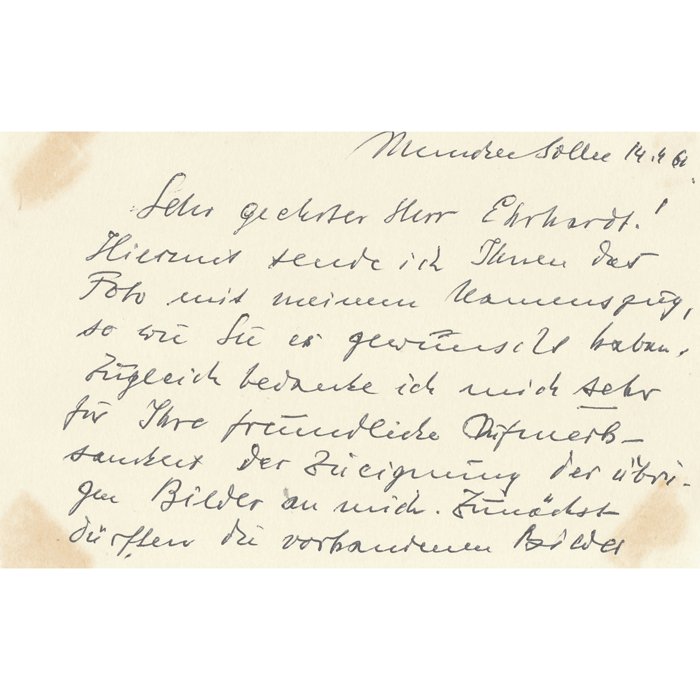 München Solln 14.4.60.
Sehr geehrter Herr Ehrhardt!
Hiermit sende ich Ihnen das
Foto mit meinem Namenszug,
so wie Sie es gewünscht haben.
Zugleich bedanke ich mich sehr
für Ihre freundliche Aufmerk-
samkeit der Zueignung der übri-
gen Bilder an mich. Zunächst
dürften die vorhandenen Bilder